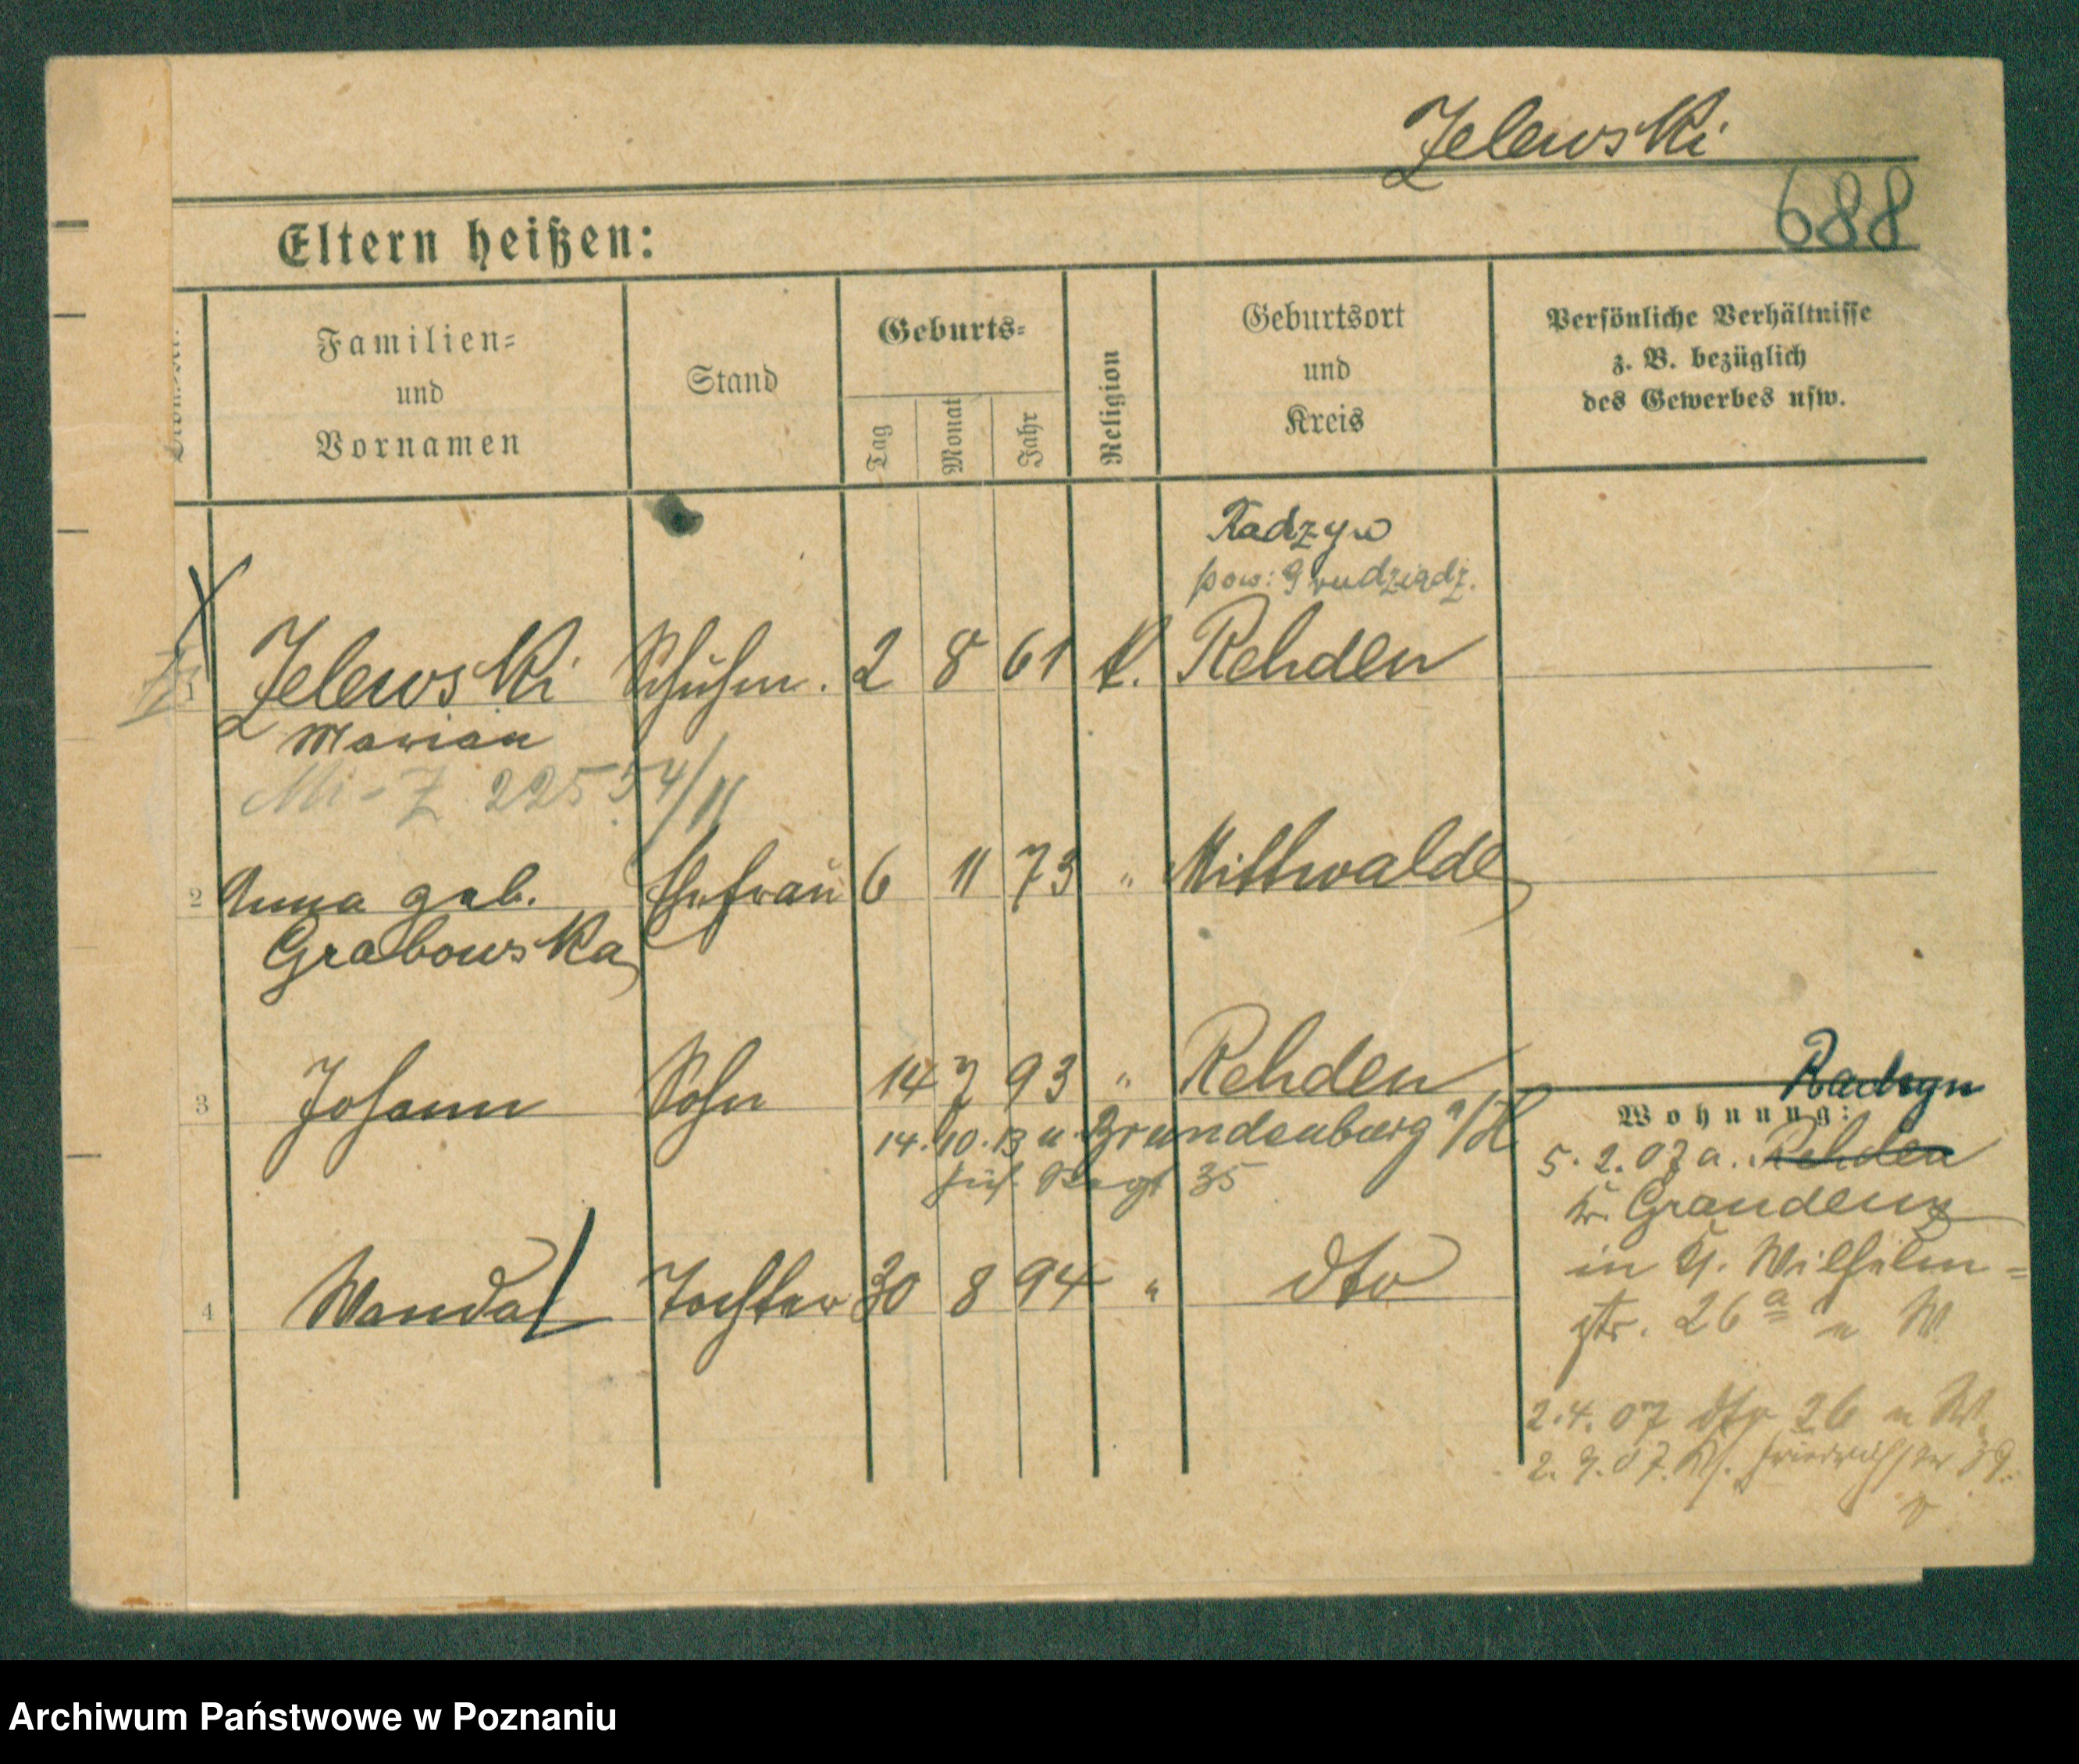 Zelewski
688
Eltern heißen:
Familien=
und
Vornamen
Stand
Geburts=
Tag
Monat
Jahr
Religion
Geburtsort
und
Kreis
Persönliche Verhältnisse
z. B. bezüglich
des Gewerbes usw.
Radzyń
pow: Grudziądz.
1 Zelewski Schuhm. 2 8 61 k. Rehden
Marian
22554/11
2 Anna geb. Ehefrau 6 11 73 " Mittwalde
Grabowska
3 Johann Sohn 14 7 93 " Rehden
14.10.13 n. Brandenburg a/H
Füs. Regt 35
4 Wanda Tochter 30 8 94 " dto
Radzyn
Wohnung:
5.2.07 a. Rehden
Kr. Graudenz
in Wilhelm=
str. 26a
2.4.07 dto 26
2.9.07. Friedrichstr 39.
Archiwum Państwowe w Poznaniu